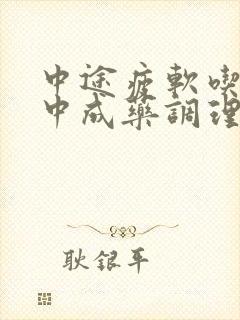 中途疲軟喫
中成藥調理
耿銀平